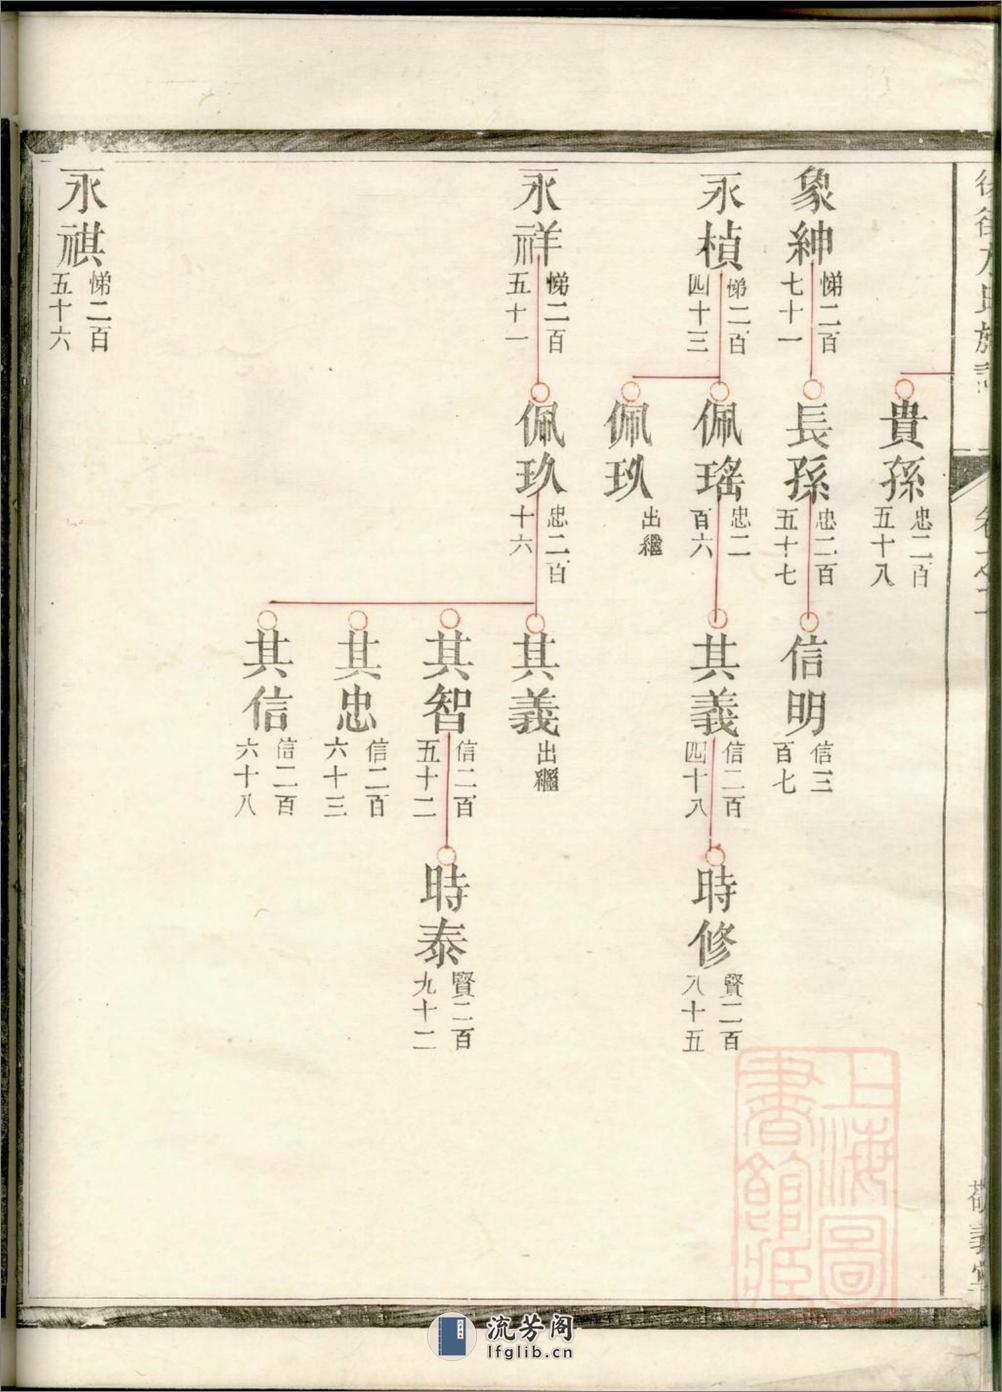 貴孫
忠二百
五十八
象紳
悌二百
七十一
長孫
忠二百
五十七
信明
信三
百七
永楨
悌二百
四十三
佩瑤
忠二
百六
其義
信二百
四十八
時修
賢二百
八十五
佩玖
出繼
永祥
悌二百
五十一
佩玖
忠二百
十六
其義
出繼
其智
信二百
五十二
時泰
賢二百
九十二
其忠
信二百
六十三
其信
信二百
六十八
永祺
悌二百
五十六
上海圖
書館藏
流芳阁
lfglib.cn